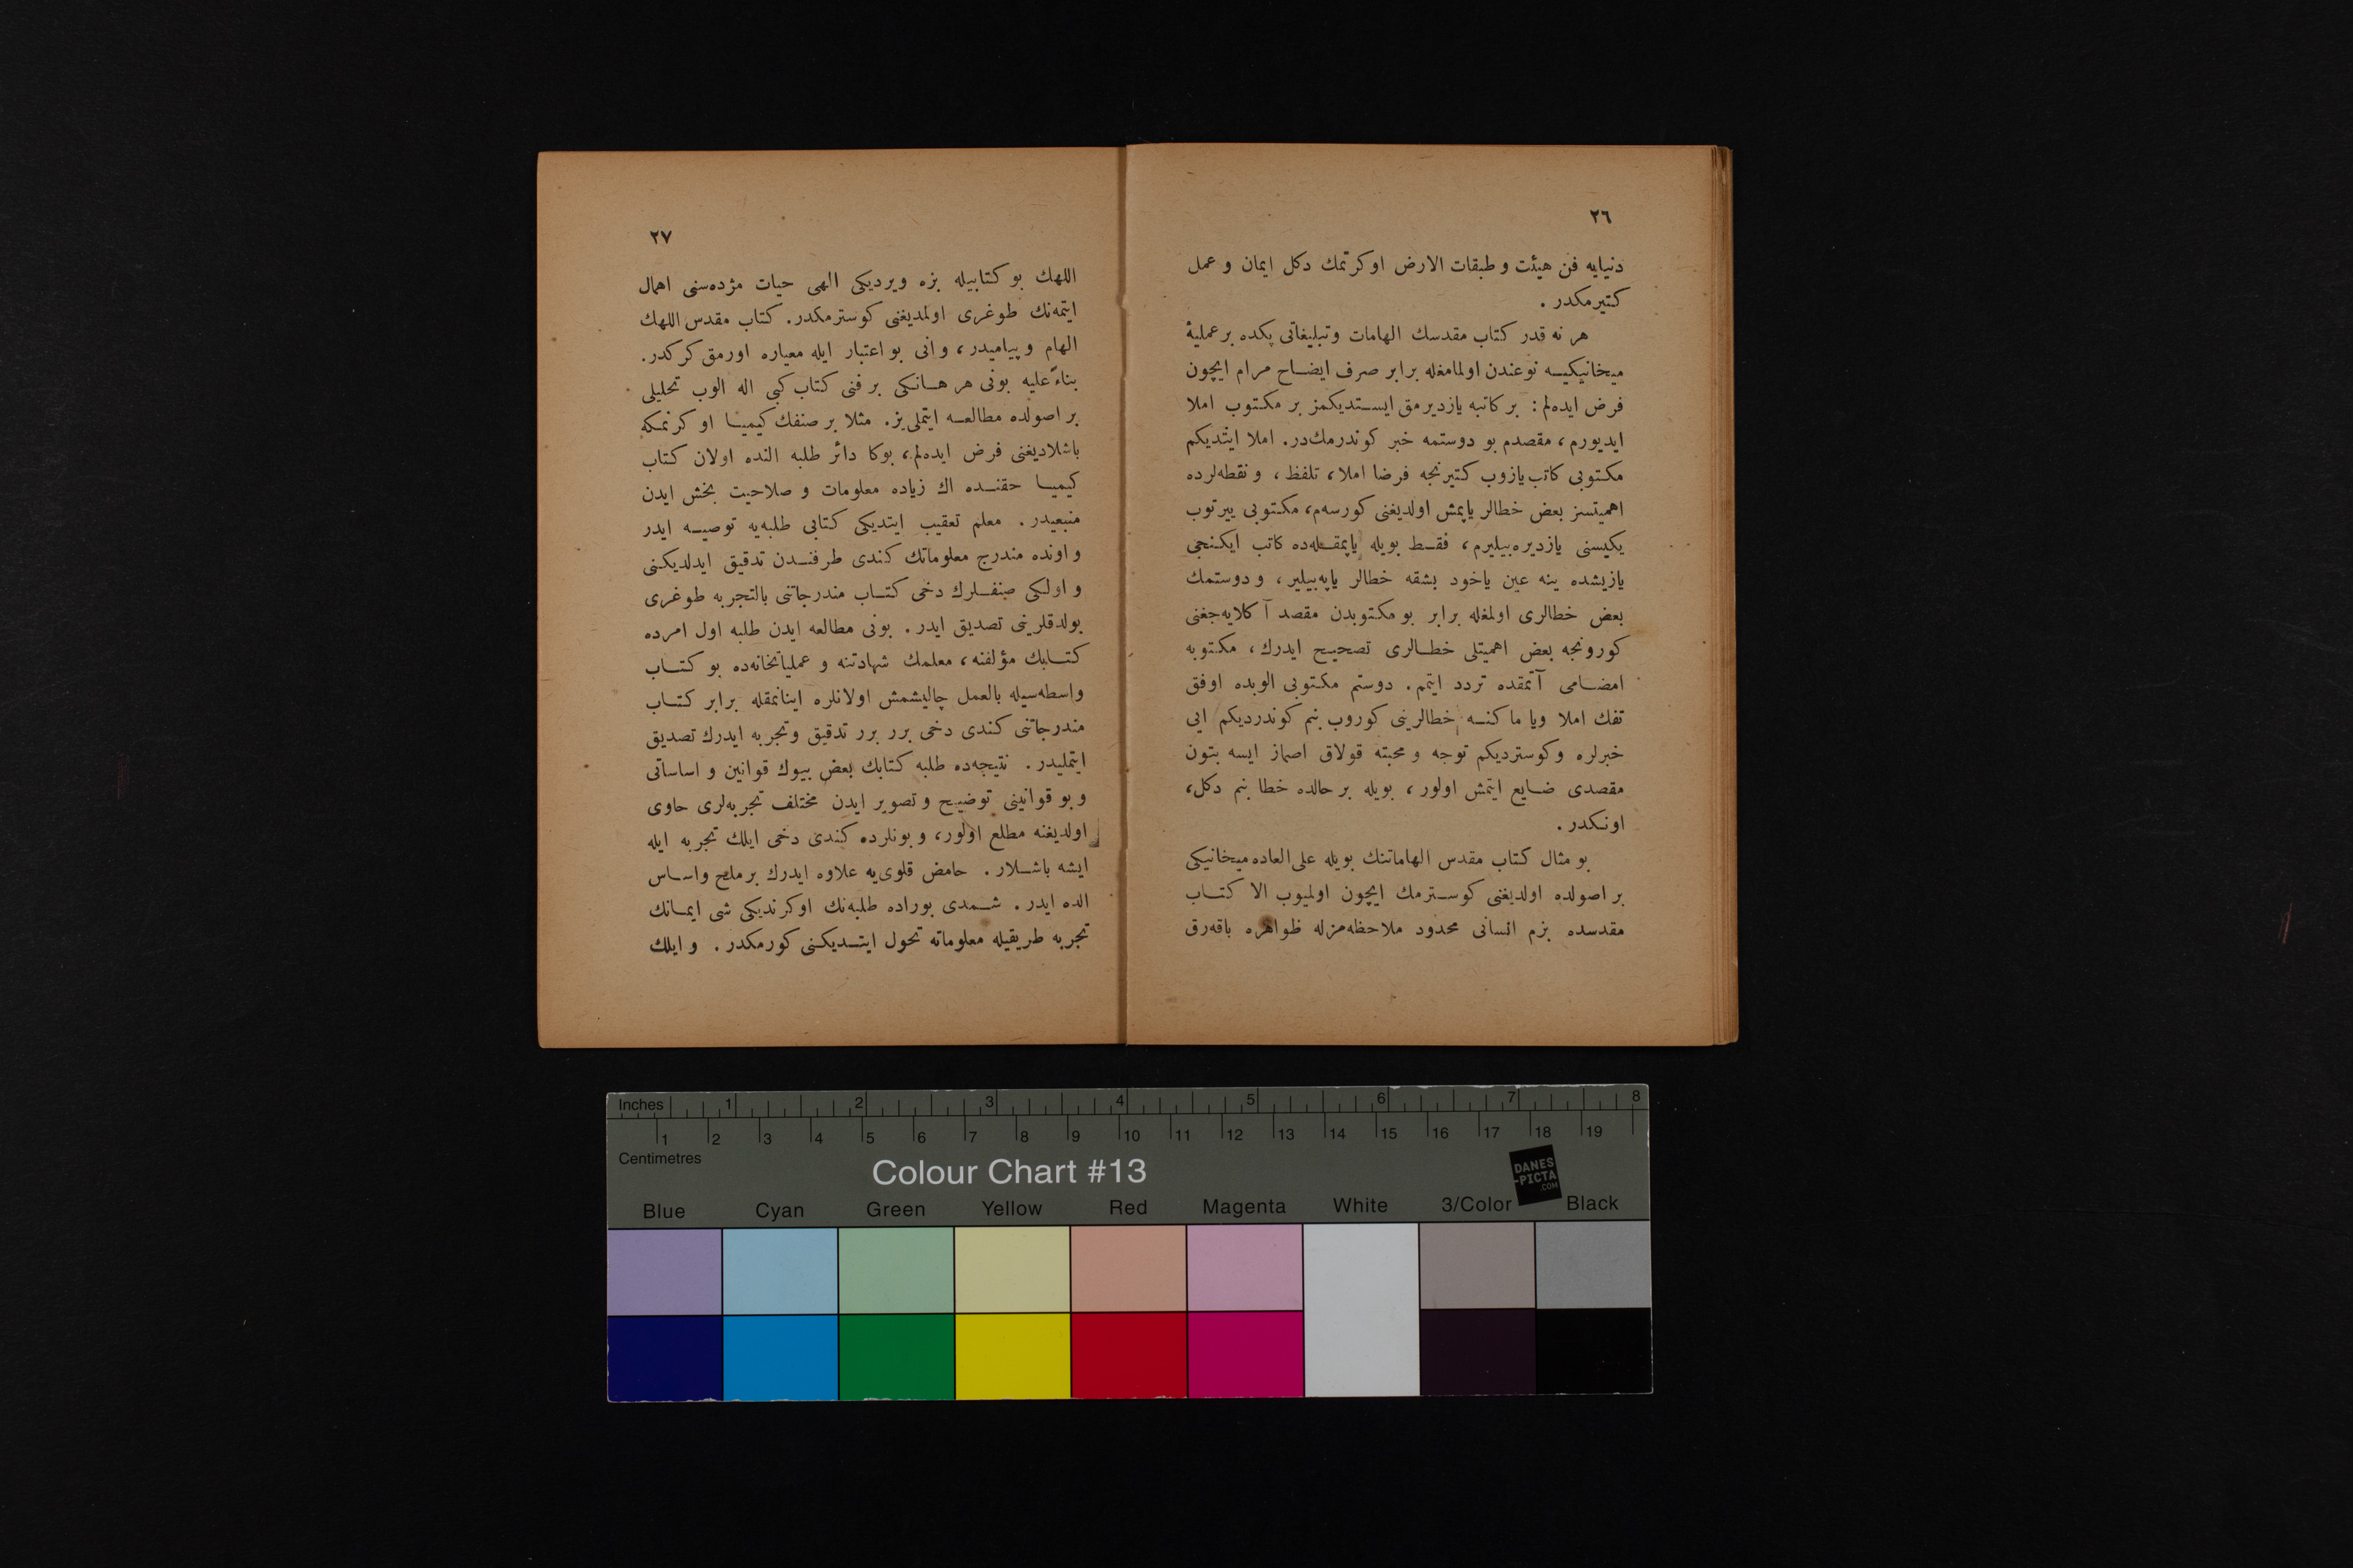 ٢٦
دنیایه فن هیئت و طبقات الارض اوکرتمك دکل ایمان و عمل
کتیرمکدر .
هر نه قدر کتاب مقدسك الهامات وتبلیغاتی پکده بر عملیهٔ
میخانیکیـه نوعندن اولمامغله برابر صرف ایضـاح مرام ایچون
فرض ایده‌لم : بر کاتبه یازدیرمق ایسـتدیکمز بر مکتوب املا
ایدیورم ، مقصدم بو دوستمه خبر کوندرمك‌در. املا ایتدیکم
مکتوبی کاتب یازوب کتیرنجه فرضا املا ، تلفظ ، و نقطه‌لرده
اهمیتسز بعض خطالر یاپمش اولدیغنی کورسه‌م، مکتوبی ییرتوب
یکیسنی یازدیره‌بیلیرم ، فقـط بویله یاپمقـله‌ده کاتب ایکنجی
یازیشده ینه عین یاخود بشقه خطالر یاپه‌بیلیر ، و دوستمك
بعض خطالری اولمغله برابر بو مکتوبدن مقصد آکلایه‌جغنی
کورونجه بعض اهمیتلی خطـالری تصحیح ایدرك ، مکتوبه
امضـامی آتمقده تردد ایتمم. دوستم مکتوبی الوبده اوفق
تفك املا ویا ماکنـه خطالرینی کوروب بنم کوندردیکم ایی
خبرلره وکوستردیکم توجه و محبته قولاق اصماز ایسه بتون
مقصدی ضـایع ایتمش اولور ، بویله بر حالده خطا بنم دکل،
اونکدر .
بو مثال کتاب مقدس الهاماتنك بویله علی‌العاده میخانیکی
بر اصولده اولدیغنی کوسـترمك ایچون اولمیوب الا کتـاب
مقدسده بزم انسانی محدود ملاحظه‌مزله ظواهره باقه‌رق
٢٧
اللهك بو کتابیله بزه ویردیکی الهی حیات مژده‌سنی اهمال
ایتمه‌نك طوغری اولمدیغنی کوسترمکدر. کتاب مقدس اللهك
الهام و پیامیدر ، وانی بو اعتبار ایله معیاره اورمق کرکدر.
بناءً علیه بونی هر هـانکی بر فنی کتاب کبی اله الوب تحلیلی
بر اصولده مطالعـه ایتملی‌یز. مثلا بر صنفك کیمیـا اوکرنمکه
باشلادیغنی فرض ایده‌لم ، بوکا دائر طلبه الندہ اولان کتاب
کیمیـا حقنـده اك زیاده معلومات و صلاحیت بخش ایدن
منبعیدر . معلم تعقیب ایتدیکی کتابی طلبه‌یه توصیـه ایدر
و اونده مندرج معلوماتك کندی طرفنـدن تدقیق ایدلدیکنی
و اولکی صنفـلرك دخی کتـاب مندرجاتنی بالتجربه طوغری
بولدقلرینی تصدیق ایدر . بونی مطالعه ایدن طلبه اول امرده
کتـابك مؤلفنه ، معلمك شهادتنه و عملیاتخانه‌ده بو کتـاب
واسطه‌سیله بالعمل چالیشمش اولانلره اینانمقله برابر کتـاب
مندرجاتنی کندی دخی برر برر تدقیق وتجربه ایدرك تصدیق
ایتملیدر . نتیجه‌ده طلبه کتابك بعض بیوك قوانین و اساساتی
و بو قوانینی توضیح و تصویر ایدن مختلف تجربه‌لری حاوی
اولدیغنه مطلع اولور، و بونلرده کندی دخی ایلك تجربه ایله
ایشه باشـلار . حامض قلوی‌یه علاوه ایدرك بر ملح واساس
الده ایدر . شـمدی بوراده طلبه‌نك اوکرندیکی شی ایمـانك
تجربه طریقیله معلوماته تحول ایتـدیکنی کورمکدر . و ایلك
Inches 1 2 3 4 5 6 7 8
1 2 3 4 5 6 7 8 9 10 11 12 13 14 15 16 17 18 19
Centimetres
Colour Chart #13
DANES
-PICTA
.COM
Blue Cyan Green Yellow Red Magenta White 3/Color Black